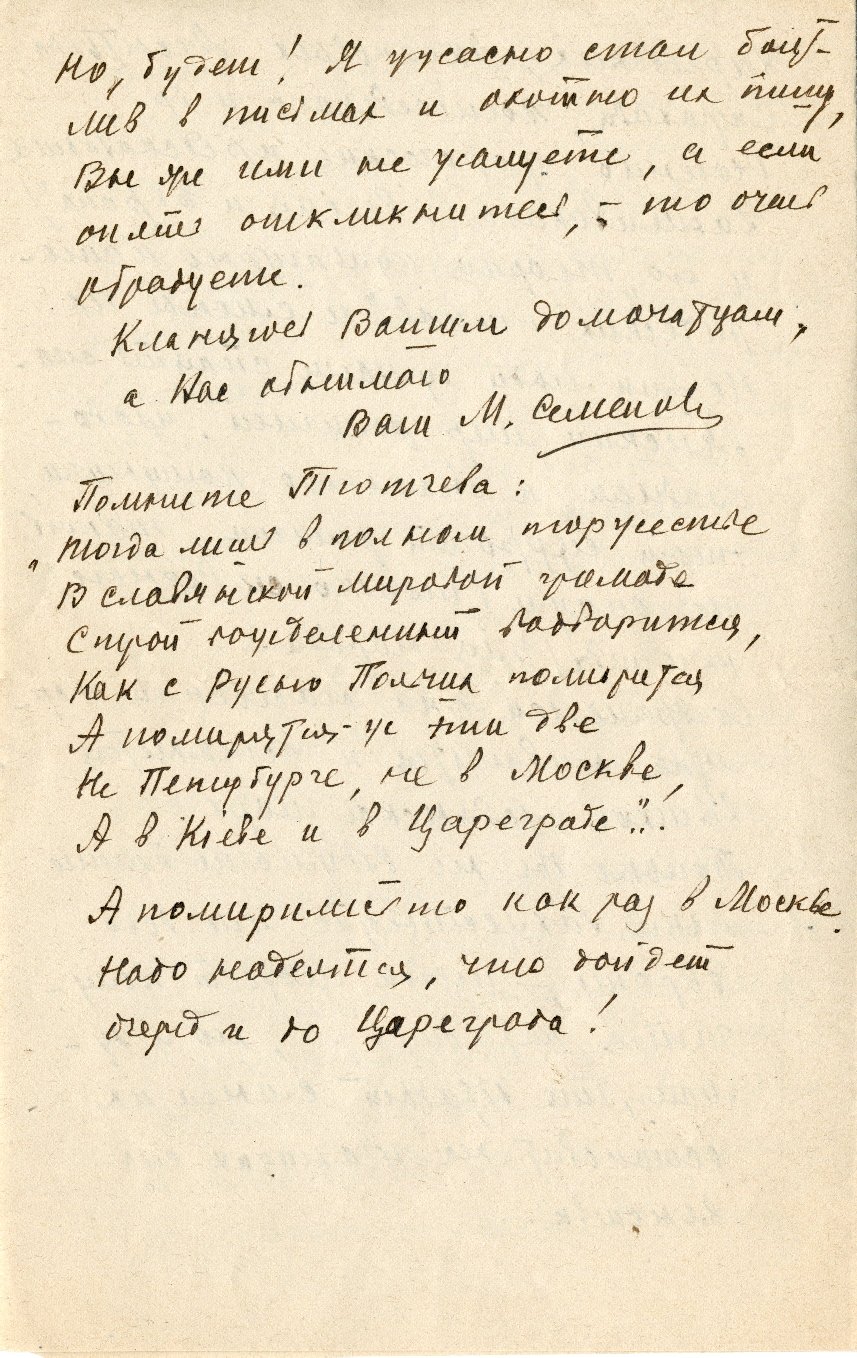 Но, будет! Я ужасно стал болт-
лив в письмах и охотно их пишу,
Вы же ими не балуете, а если
опять откликнитесь, – то очень
обрадуете.
Кланяюсь Вашим домочадцам,
а Вас обнимаю
Ваш М. Семенов
Помните Тютчева:
„Тогда лишь в полном торжестве
В славянской мировой громаде
Строй вожделенный водворится,
Как с Русью Польша помирится
А помирятся-ж эти две
Не Петербурге, не в Москве,
А в Кіеве и в Цареграде"..!
А помирились то как раз в Москве.
Надо надеяться, что дойдет
очередь и до Цареграда!